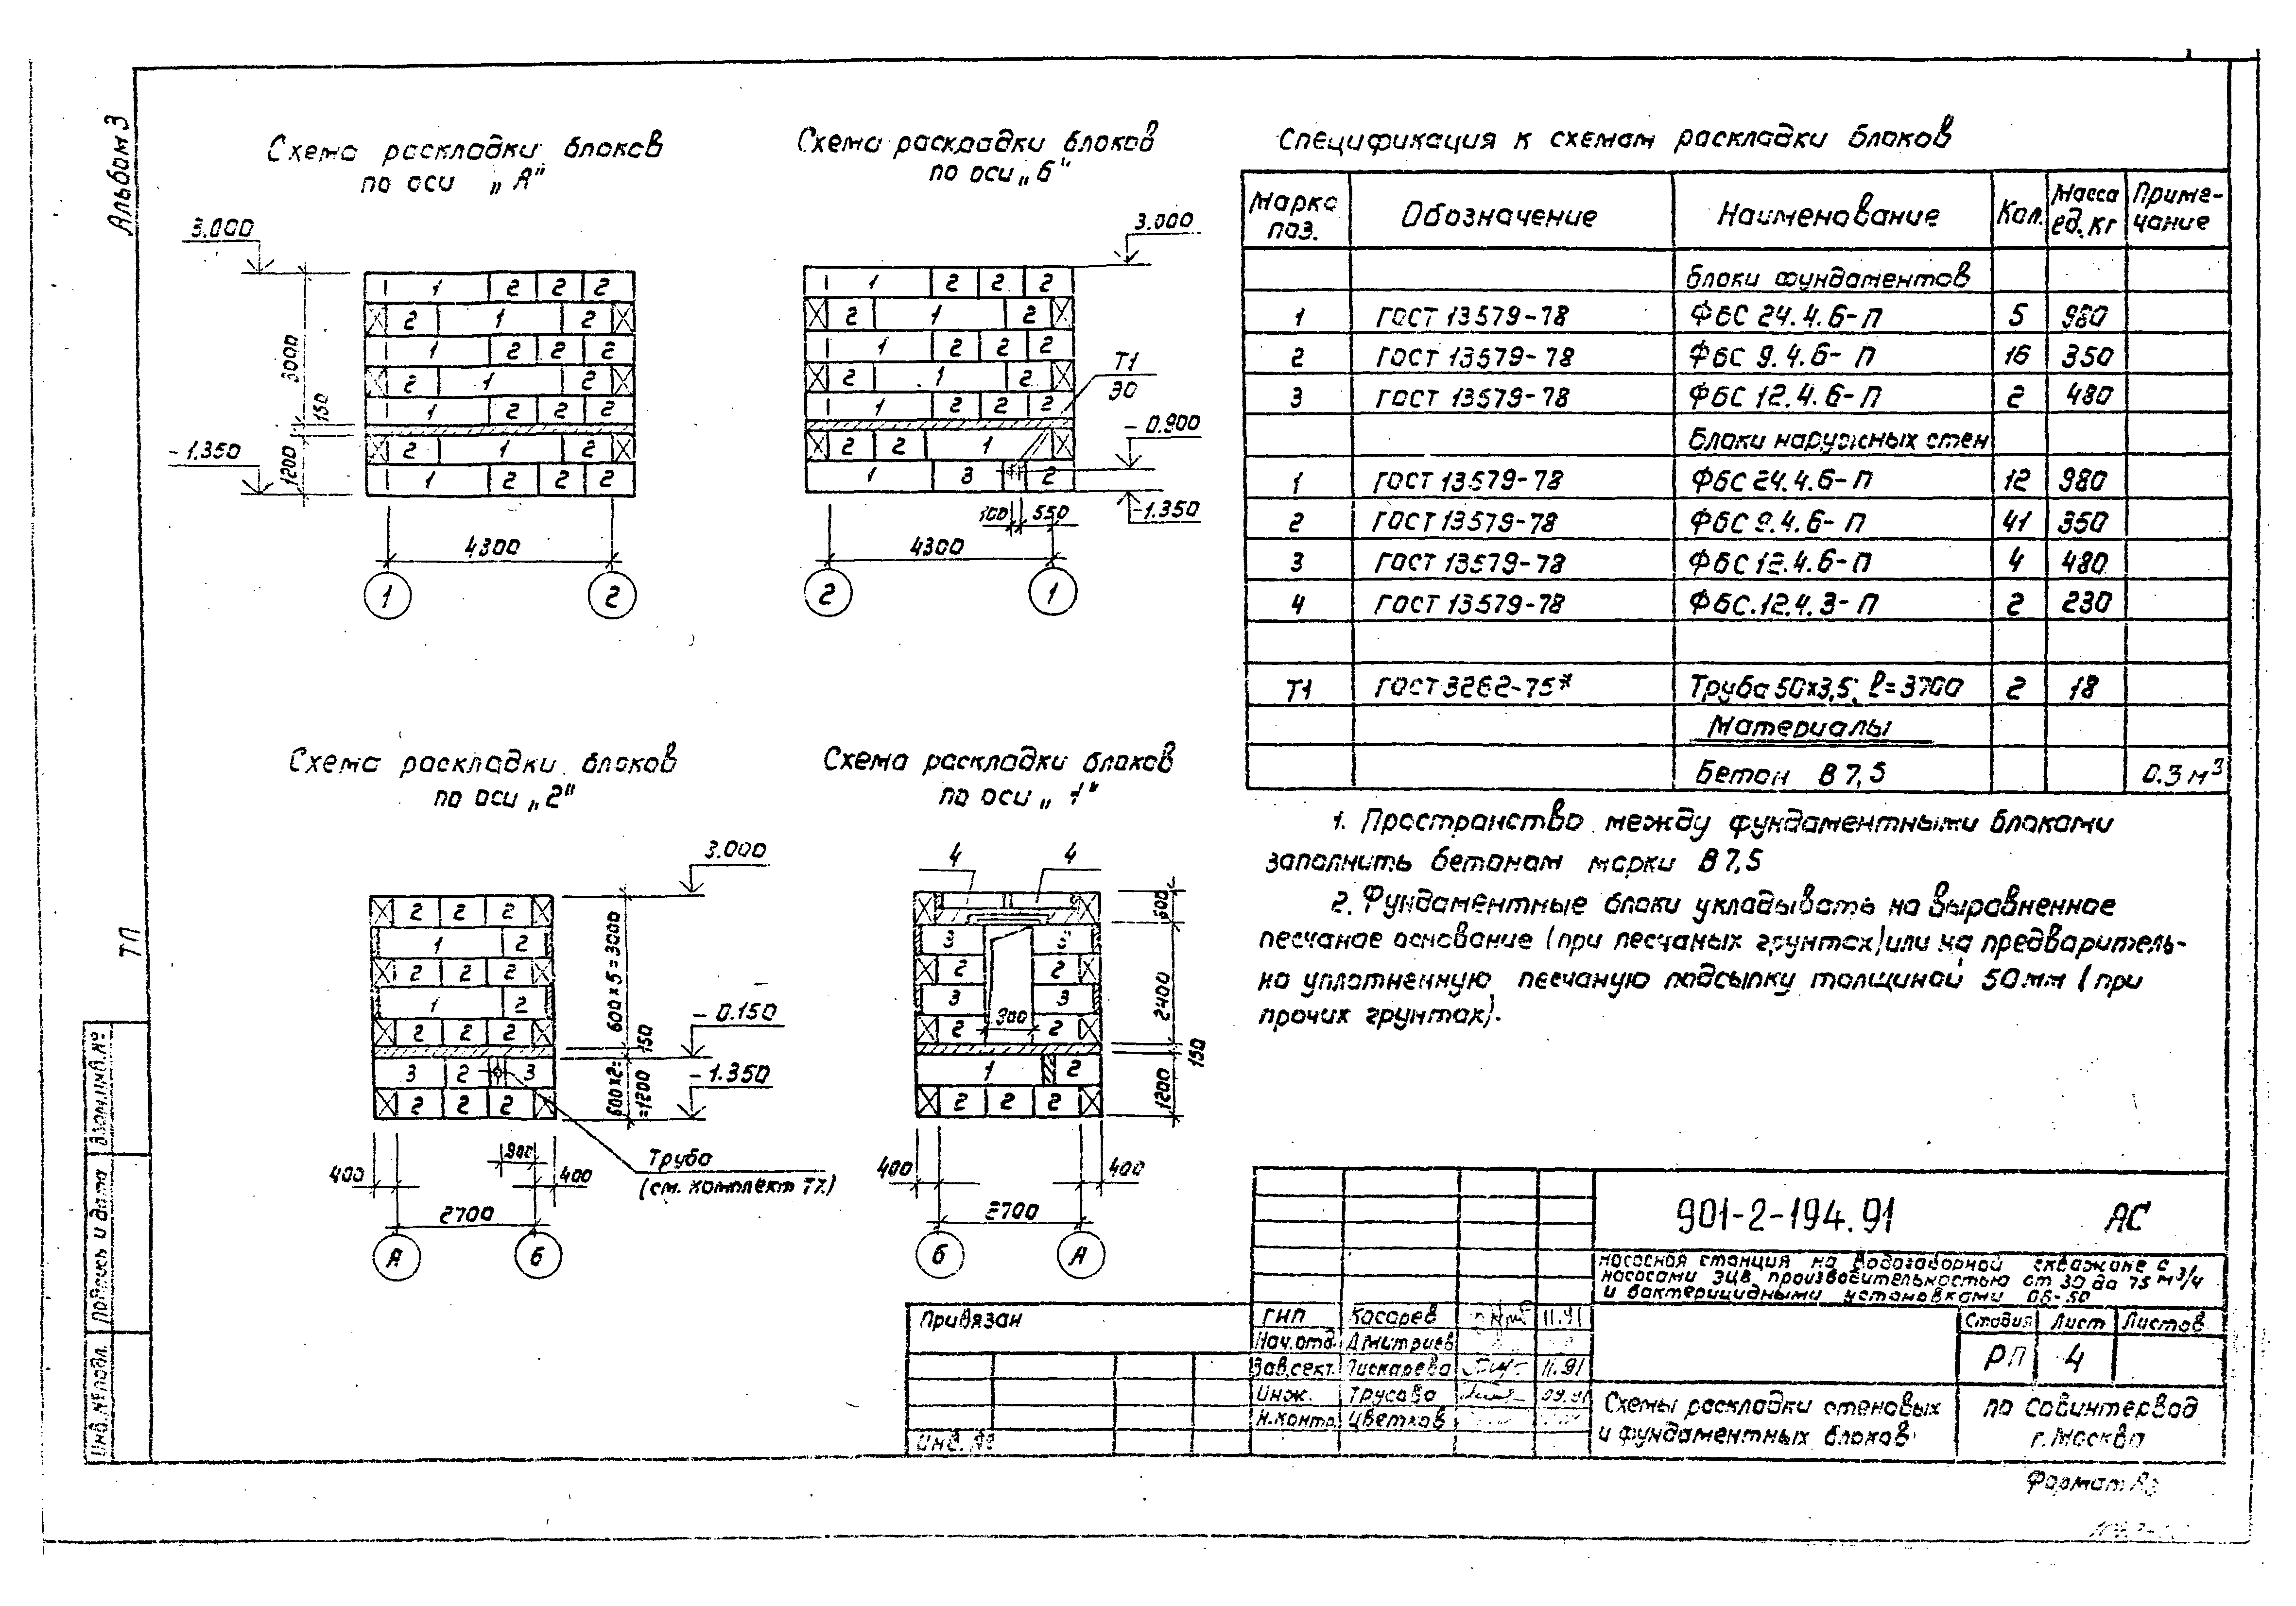 Альбом 3
ТП
Схема раскладки блоков
по оси „А"
3.000
-1.350
3000
150
1200
1 2 2 2
2 1 2
1 2 2 2
2 1 2
1 2 2 2
2 1 2
1 2 2 2
4300
1 2
Схема раскрадки блоков
по оси „Б"
3.000
1 2 2 2
2 1 2
1 2 2 2
2 1 2
1 2 2 2
2 2 1
1 3 2
Т1
30
-0.900
-1.350
100 550
4300
2 1
Схема раскладки блоков
по оси „2"
3.000
-0.150
-1.350
600х5=3000
150
600х2=
=1200
2 2 2
1 2
2 2 2
1 2
2 2 2
3 2 3
2 2 2
Труба
(см. комплект ТХ)
400 900 400
2700
А Б
Схема раскладки блоков
по оси „1"
4 4
600
2400
150
1200
3 3
2 2
3 3
2 900 2
1 2
2 2 2
400 400
2700
Б А
Спецификация к схемам раскладки блоков
Марка поз. Обозначение Наименование Кол. Масса ед.кг Приме-чание
блоки фундаментов
1 ГОСТ 13579-78 ФБС 24.4.6-П 5 980
2 ГОСТ 13579-78 ФБС 9.4.6-П 16 350
3 ГОСТ 13579-78 ФБС 12.4.6-П 2 480
Блоки наружных стен
1 ГОСТ 13579-78 ФБС 24.4.6-П 12 980
2 ГОСТ 13579-78 ФБС 9.4.6-П 41 350
3 ГОСТ 13579-78 ФБС 12.4.6-П 4 480
4 ГОСТ 13579-78 ФБС.12.4.3-П 2 230
Т1 ГОСТ 3262-75* Труба 50х3,5; ℓ=3700 2 18
Материалы
Бетон В 7,5 0.3 м³
1. Пространство между фундаментными блоками
заполнить бетоном марки В 7,5
2. Фундаментные блоки укладывать на выравненное
песчаное основание (при песчаных грунтах) или на предваритель-
но уплотненную песчаную подсыпку толщиной 50 мм (при
прочих грунтах).
901-2-194.91 АС
насосная станция на водозаборной скважине с
насосами ЭЦВ производительностью от 30 до 75 м³/ч
и бактерицидными установками ОБ-50
Привязан
Инв. №
ГИП Косарев 11.91
Нач.отд. Дмитриев
Зав.сект. Пискарева 11.91
Инж. Трусова 09.91
Н.контр. Цветков
Стадия Лист Листов
РП 4
Схемы раскладки стеновых
и фундаментных блоков
ПО Совинтервод
г. Москва
Формат А3
Взам.инв.№
Подпись и дата
Инв.№ подл.